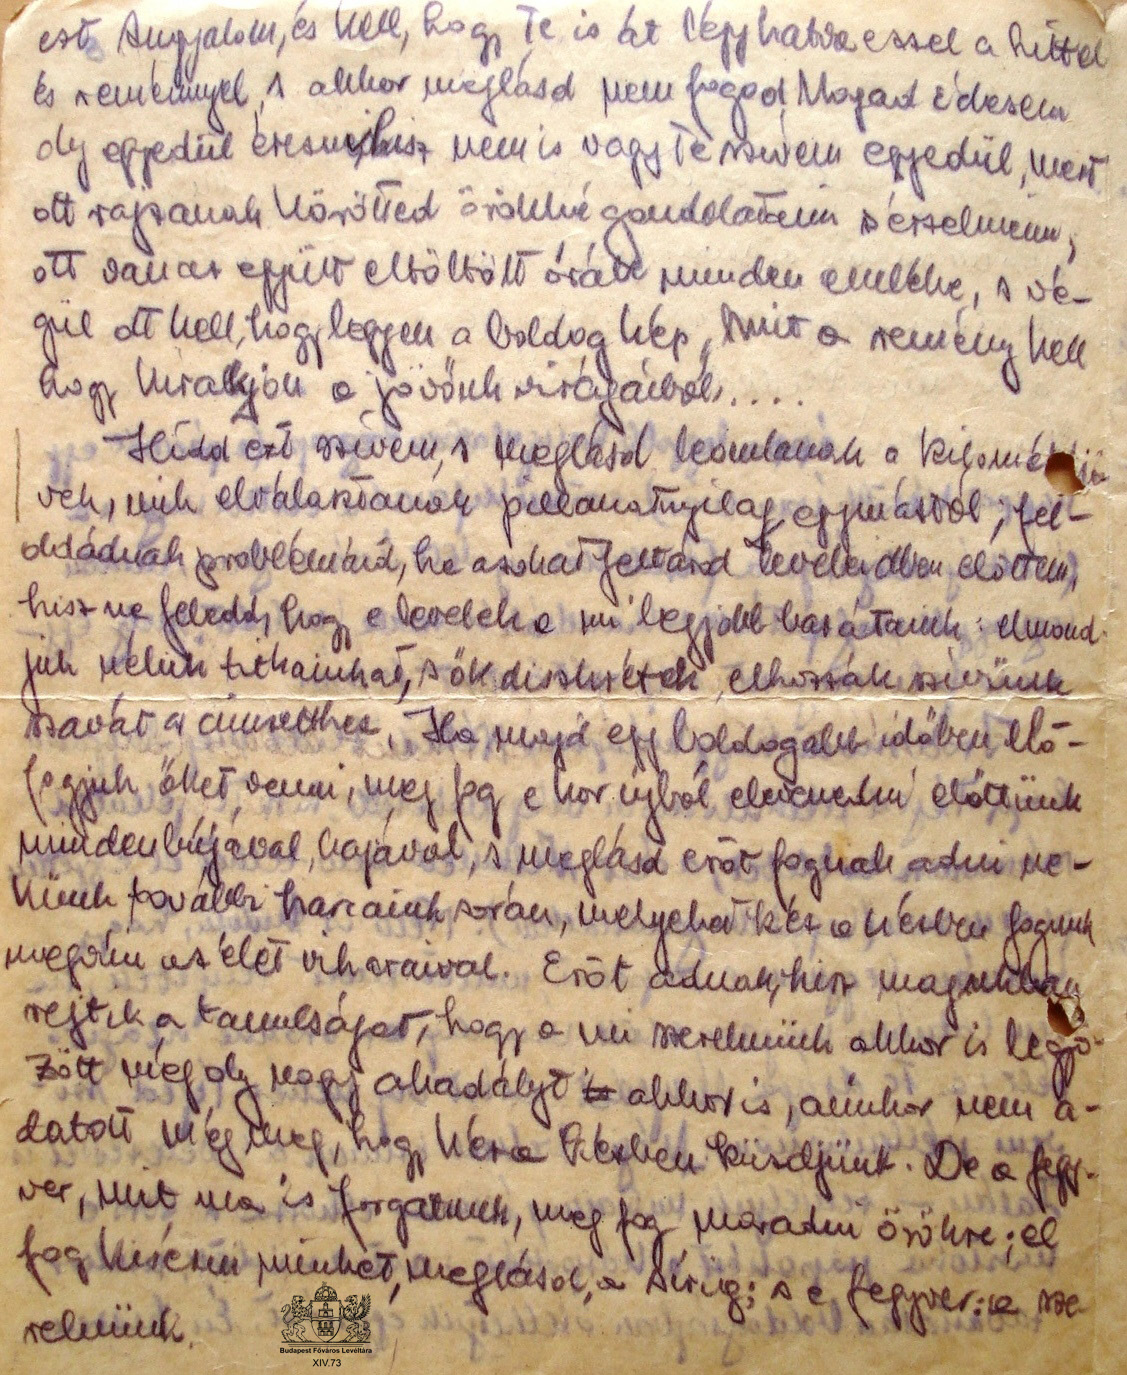 ezt Angyalom, és kell, hogy Te is át légy hatva ezzel a hittel
és reménnyel, s akkor meglásd nem fogod Magad édesem
oly egyedül érezni, hisz nem is vagy Te szivem egyedül, mert
ott rajzanak körötted örökké gondolataim s érzelmeim,
ott van az együtt eltöltött órák minden emléke, s vé-
gül ott kell, hogy legyen a boldog kép, mit a remény kell
hogy kirakjon a jövőnk virágaiból....
Hidd ezt szívem, s meglásd leomlanak a
vek, mik elválasztanak pillanatnyilag egymástól; fel-
oldódnak problémáid, ha azokat feltárod leveleidben előttem,
hisz ne feledd, hogy e levelek a mi legjobb barátaink: elmond-
juk nékik titkainkat, s ők diszkrétek, elhozzák szívünk
szavát a címzetthez. Ha majd egy boldogabb időben elő-
fogjuk őket venni, meg fog e kor ujból elevenedni előttünk
minden bújával, bajával, s meglásd erőt fognak adni ne-
künk további harcaink során, melyeket kéz a kézben fogunk
megvívni az élet viharaival. Erőt adnak, hisz magukban
rejtik a tanulságot, hogy a mi szerelmünk akkor is legyő-
zött még oly nagy akadályt is akkor is, amikor nem a-
datott még meg, hogy kéz a kézben küzdjünk. De a fegy-
ver, mit ma is forgatunk, meg fog maradni örökre; el
fog kisérni minket, meglásd, a sírig; s e fegyver: a sze
relmünk.
Budapest Főváros Levéltára
XIV.73